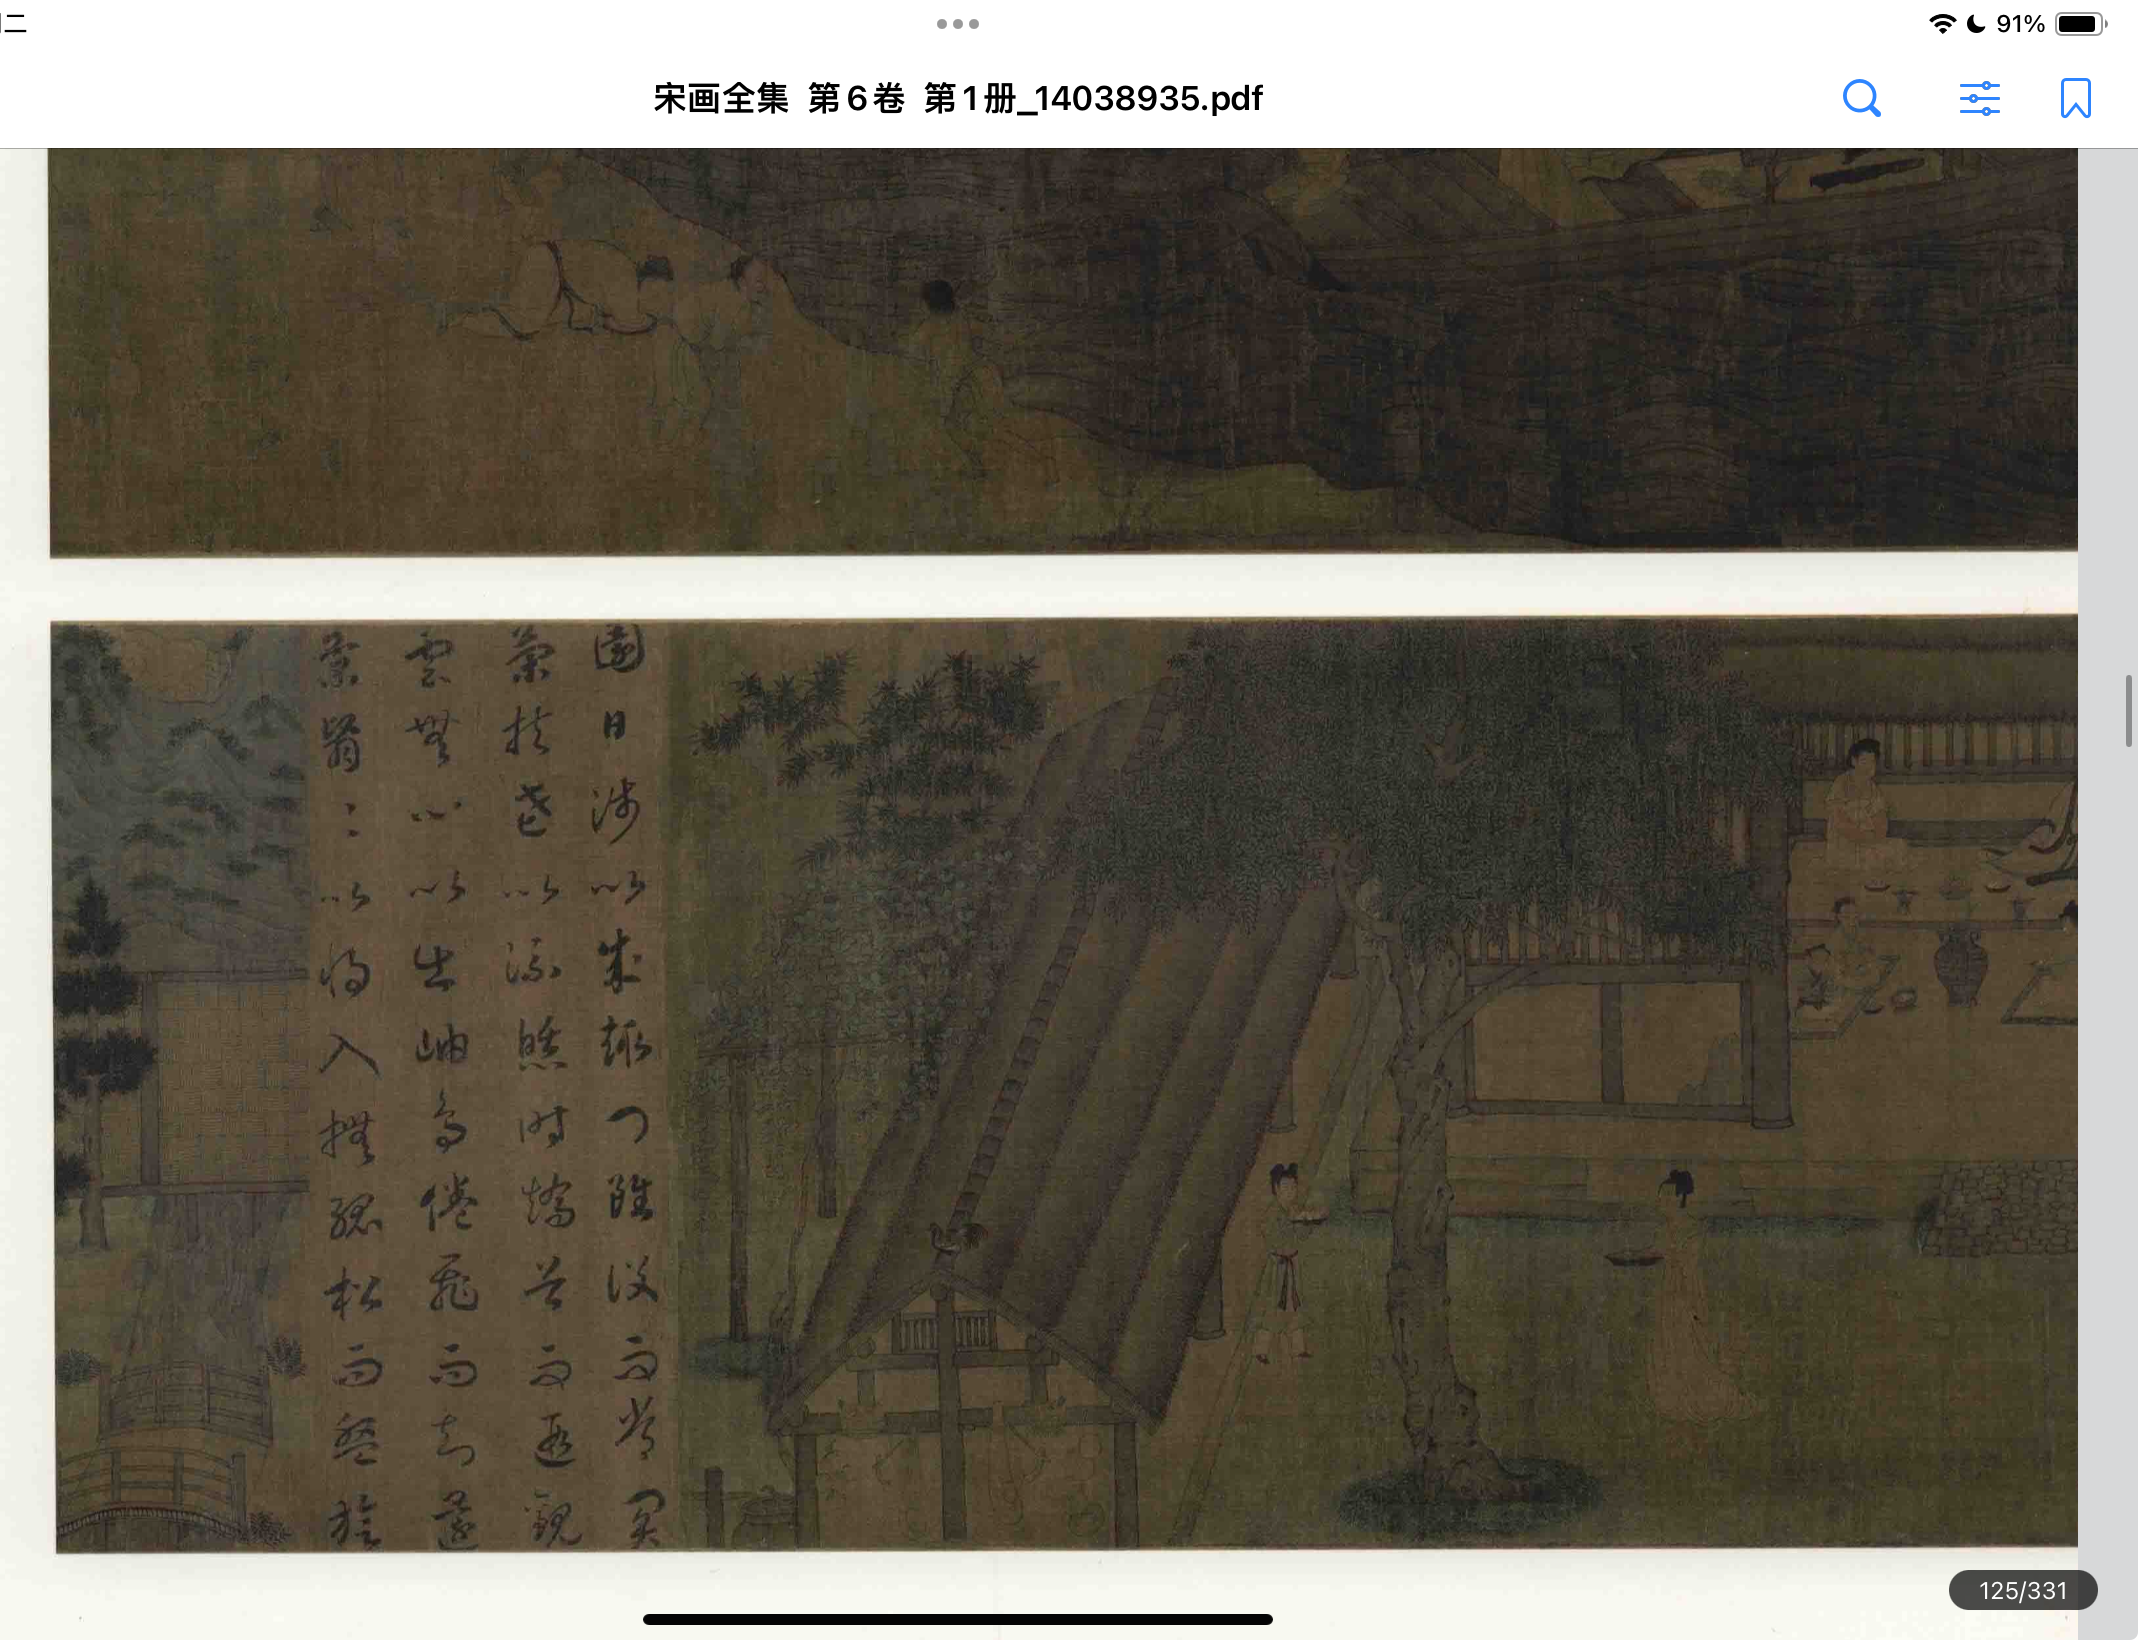 二
91%
宋画全集 第6卷 第1册_14038935.pdf
園日涉以成趣門雖設而常関
策扶老以流憩時矯首而遐觀
雲無心以出岫鳥倦飛而知還
景翳〻以将入撫孤松而盤桓
125/331